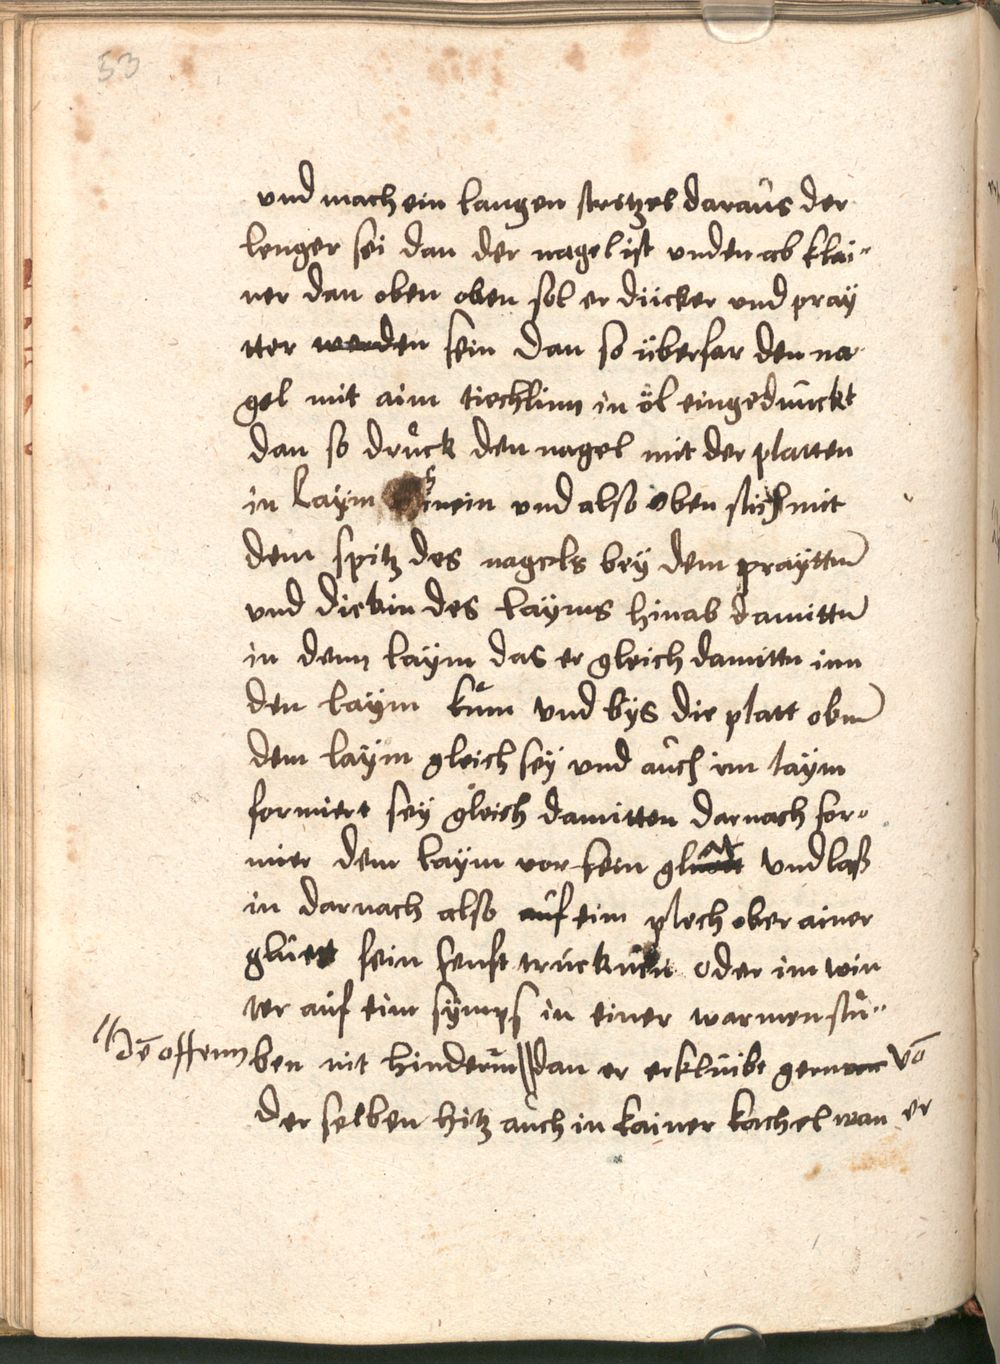 53
und mach ein langen stretzel daraus der
lenger sei dan der nagel ist unden ab klai-
ner dan oben oben sol er dicker und praÿ
tter werden sein dan so überfar den na
gel mit aim tiechlinn in öl eingedunckt
dan so druck den nagel mit der platten
in laÿm hinein und also oben stich mit
dem spitz des nagels beÿ dem praÿtten
und dickin des laÿms hinab damitten
in denn laÿm das er gleich damitten inn
den laÿm kum und bÿs die platt oben
dem laÿm gleich seÿ und auch im laÿm
formiert seÿ gleich damitten darnach for-
mier dem laÿm vor sein glatt und laß
in darnach also auf eim plech ober ainer
gluett fein senft trucknen oder im win
ter auf eim sÿmps in einer warmen stu-
ben nit hinderm || dan er erkluibt gern vō
|| dē offenn
der selben hitz auch in kainer kachel wan er